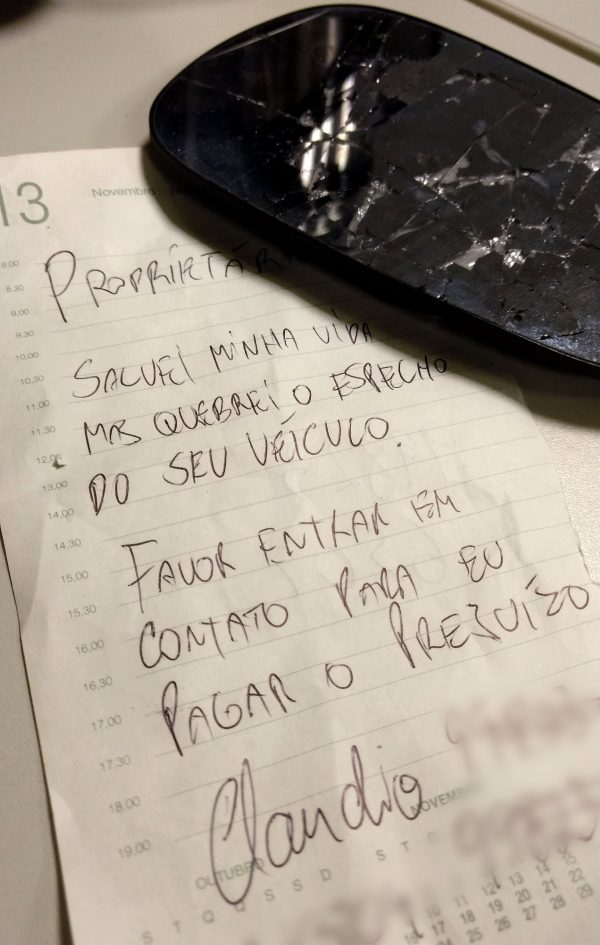 13 Novembro
8.00
8.30
PROPRIETÁRI
9.00
9.30
10.00
SALVEI MINHA VIDA
10.30
11.00
MAS QUEBREI O ESPELHO
11.30
12.00
DO SEU VEÍCULO.
13.00
14.00
14.30
FAVOR ENTRAR EM
15.00
15.30
CONTATO PARA EU
16.00
16.30
PAGAR O PREJUÍZO
17.00
17.30
18.00
Claudio
19.00
OUTUBRO NOVEMB
S T Q Q S S D S T Q
10 11 12 13 14 15
17 18 19 20 21 22
24 25 26 27 28 29